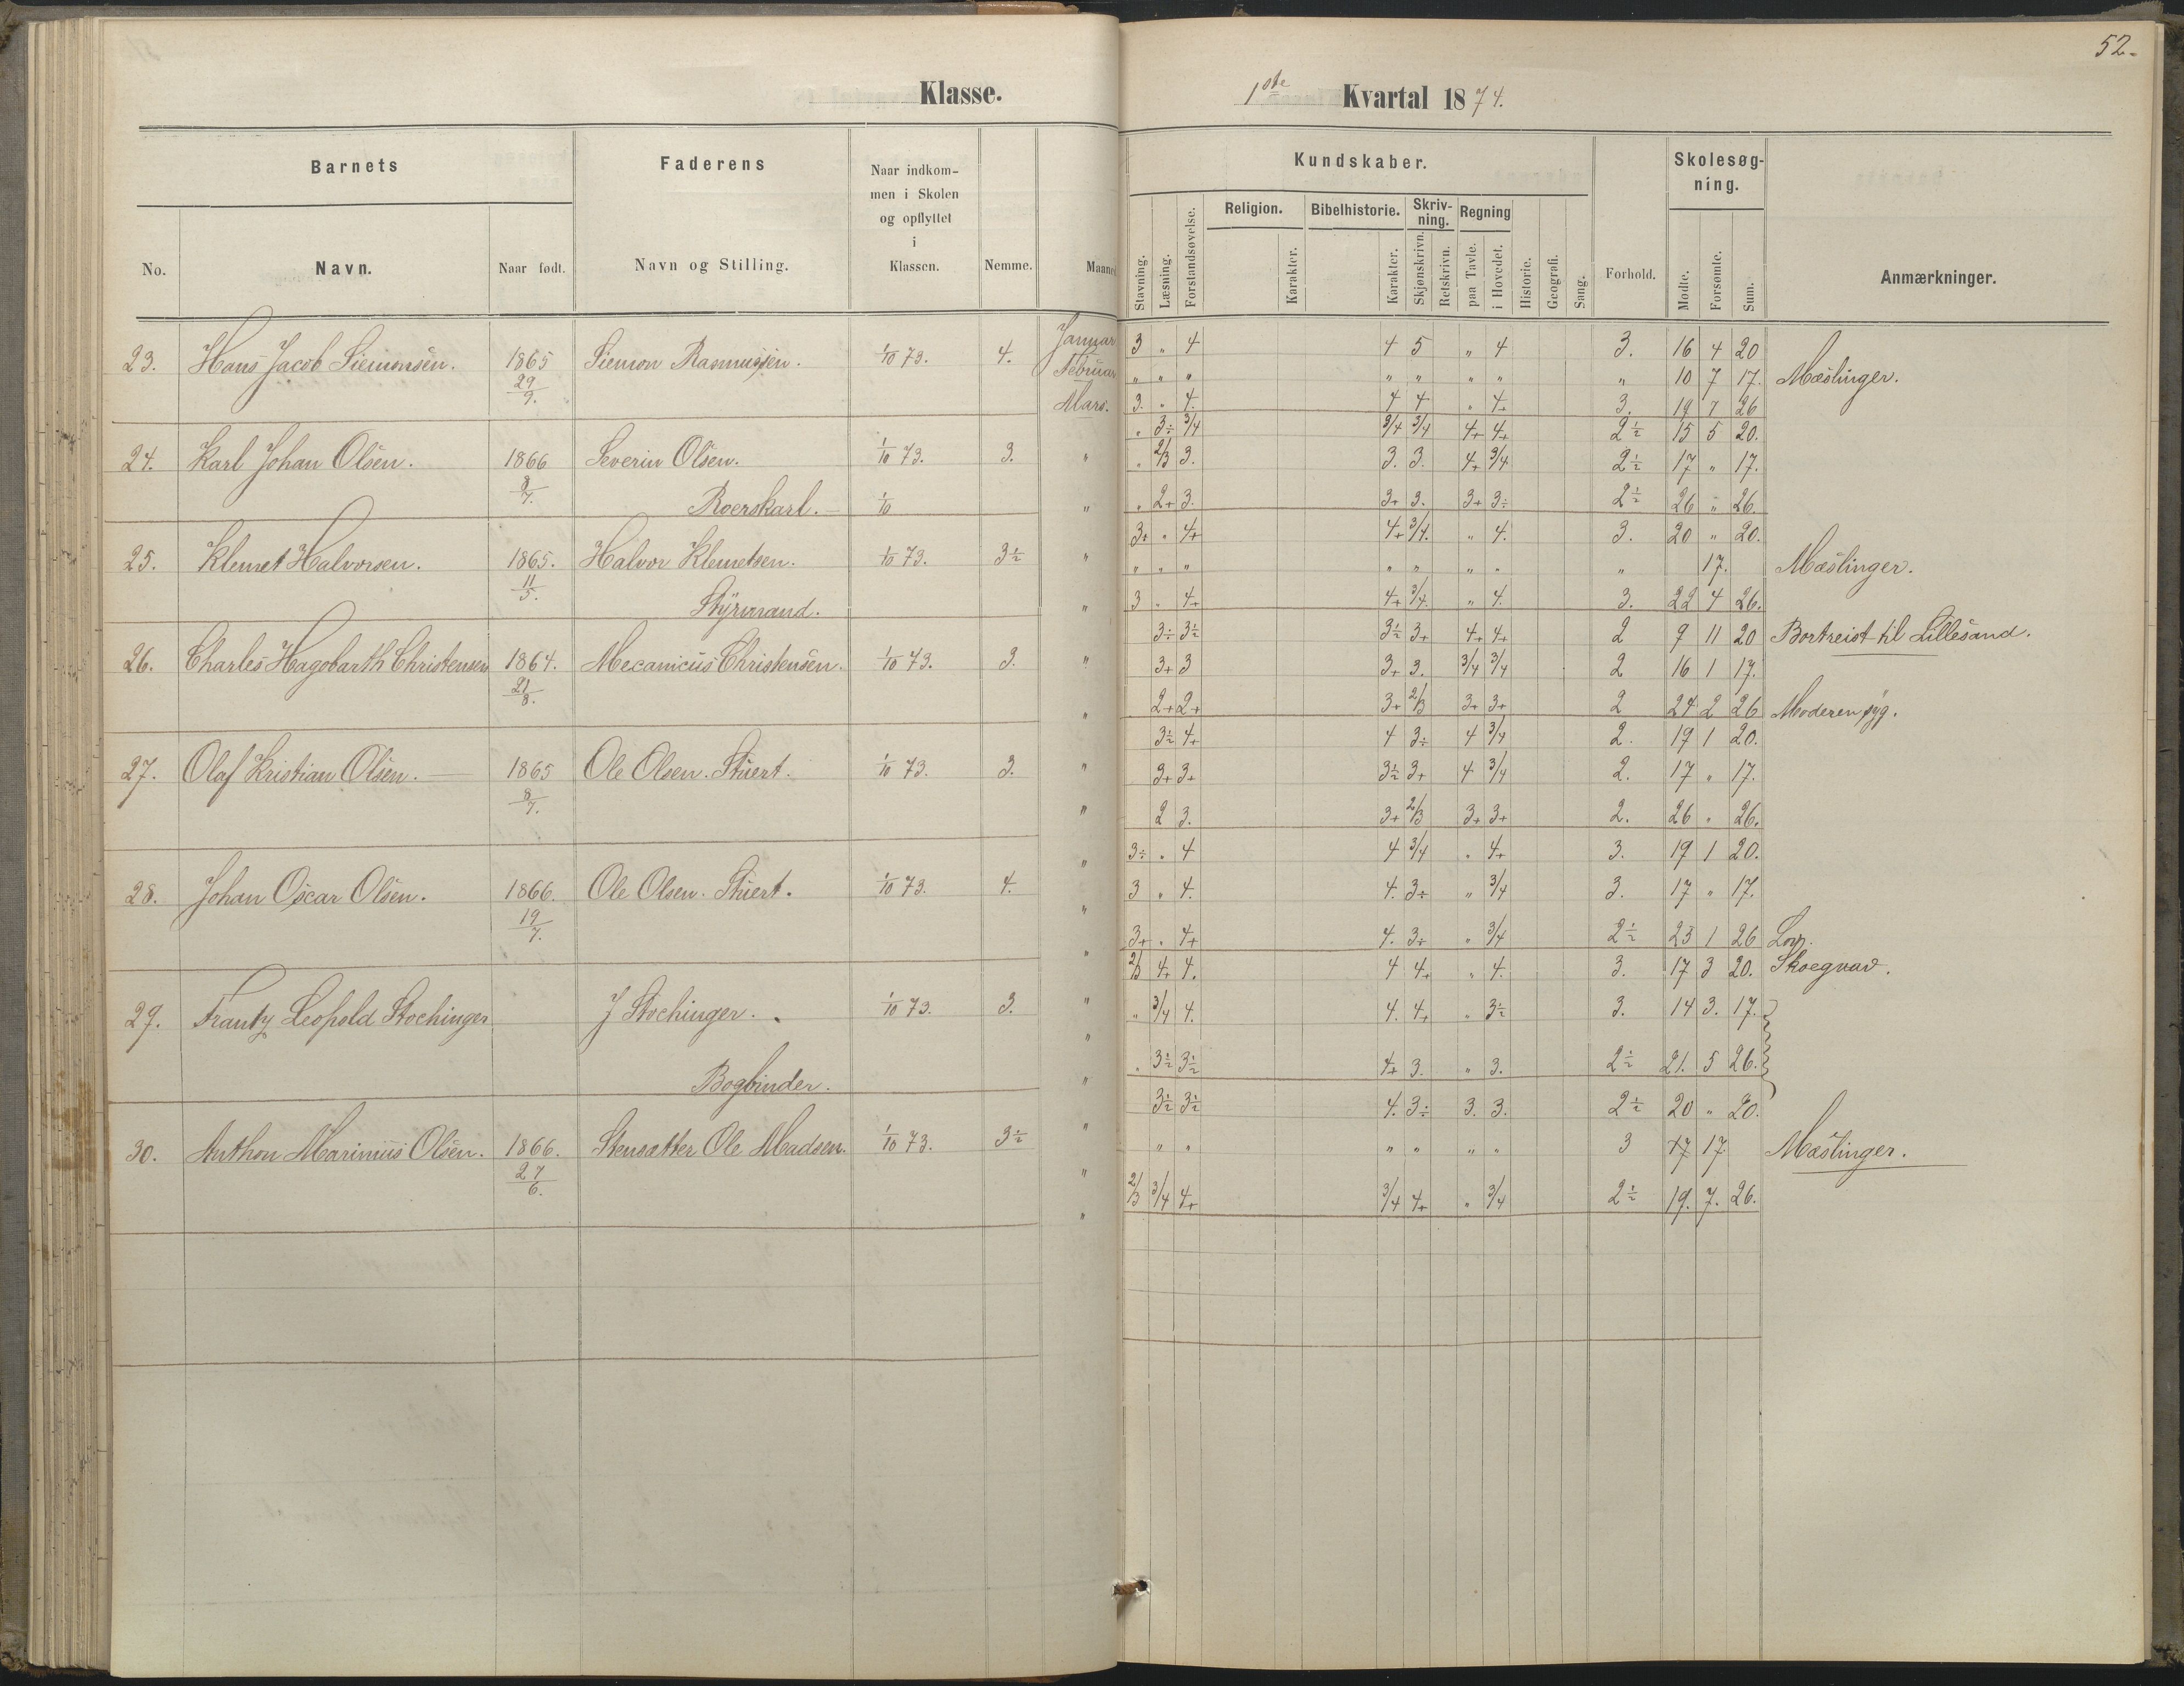 52.
Klasse.
1ste Kvartal 1874.
Barnets Faderens Naar indkommen i Skolen og opflyttet i Klassen. Nemme. Kundskaber. Forhold. Skolesøgning. Anmærkninger.
No. Navn. Naar født. Navn og Stilling. Stavning. Læsning. Forstandsøvelse. Religion. Karakter. Bibelhistorie. Karakter. Skrivning. Skjønskrivn. Retskrivn. Regning paa Tavle. i Hovedet. Historie. Geografi. Sang. Mødte. Forsømte. Sum.
Januar 3 " 4 4 5 " 4 3. 16 4 20
23. Hans Jacob Siemonsen. 1865 29/9. Siemon Rasmussen. 1/10 73. 4.
Februar " " " " " " " " 10 7 17. Mæslinger.
Mars. 3. " 4. 4 4 " 4+ 3. 19 7 26
" 3÷ 3/4 3/4 3/4 4+ 4+ 2½ 15 5 20.
24. Karl Johan Olsen. 1866 Severin Olsen. 1/10 73. 3. " " 2/3 3. 3. 3. 4+ 3/4 2½ 17 " 17.
Roerskarl. 1/10 " " 2+ 3. 3+ 3. 3+ 3÷ 2½ 26 " 26.
3+ " 4+ 4+ 3/4. " 4. 3. 20 " 20.
25. Klemet Halvorsen. 1865. 11/5. Halvor Klemetsen. 1/10 73. 3½ " " " " " " " " " 17. Mæslinger.
Styrmand. " 3 " 4+ 4+ 3/4. " 4. 3. 22 4 26.
3÷ 3½ 3½ 3+ 4+ 4+ 2 9 11 20 Bortreist til Lillesand.
26. Charles Hagobarth Christensen 1864. 21/8. Mecanicus Christensen. 1/10 73. 3. " 3+ 3 3+ 3. 3/4 3/4 2 16 1 17.
" 2+ 2+ 3+ 2/3 3+ 3+ 2 24 2 26 Moderen syg.
3½ 4+ 4 3÷ 4 3/4 2. 19 1 20.
27. Olaf Kristian Olsen. 1865 8/7. Ole Olsen. Stuert. 1/10 73. 3. " 3+ 3+ 3½ 3+ 4 3/4 2. 17 " 17.
" 2 3. 3+ 2/3 3+ 3+ 2. 26 " 26.
" 3÷ " 4 4 3/4 " 4+ 3. 19 1 20.
28. Johan Oscar Olsen. 1866. 19/7. Ole Olsen. Stuert. 1/10 73. 4. 3 " 4. 4. 3÷ " 3/4 3. 17 " 17.
" 3+ " 4+ 4. 3+ " 3/4 2½ 25 1 26 Lov.
" 2/3 4+ 4. 4 4+ " 4. 3. 17 3 20.
29. Frantz Leopold Stochinger J Stochinger. 1/10 73. 3. " " 3/4 4. 4. 4+ " 3½ 3. 14 3. 17.
Bogbinder. " " 3½ 3½ 4+ 3. " 3. 2½ 21. 5 26.
" 3½ 3½ 4. 3÷ 3. 3. 2½ 20 " 20.
30. Anthon Marinius Olsen. 1866. 27/6. Stensætter Ole Madsen. 1/10 73. 3½ " " " " " " " 3 17 17 Mæslinger.
" 2/3 3/4 4+ 3/4 4+ " 3/4 2½ 19. 7. 26.